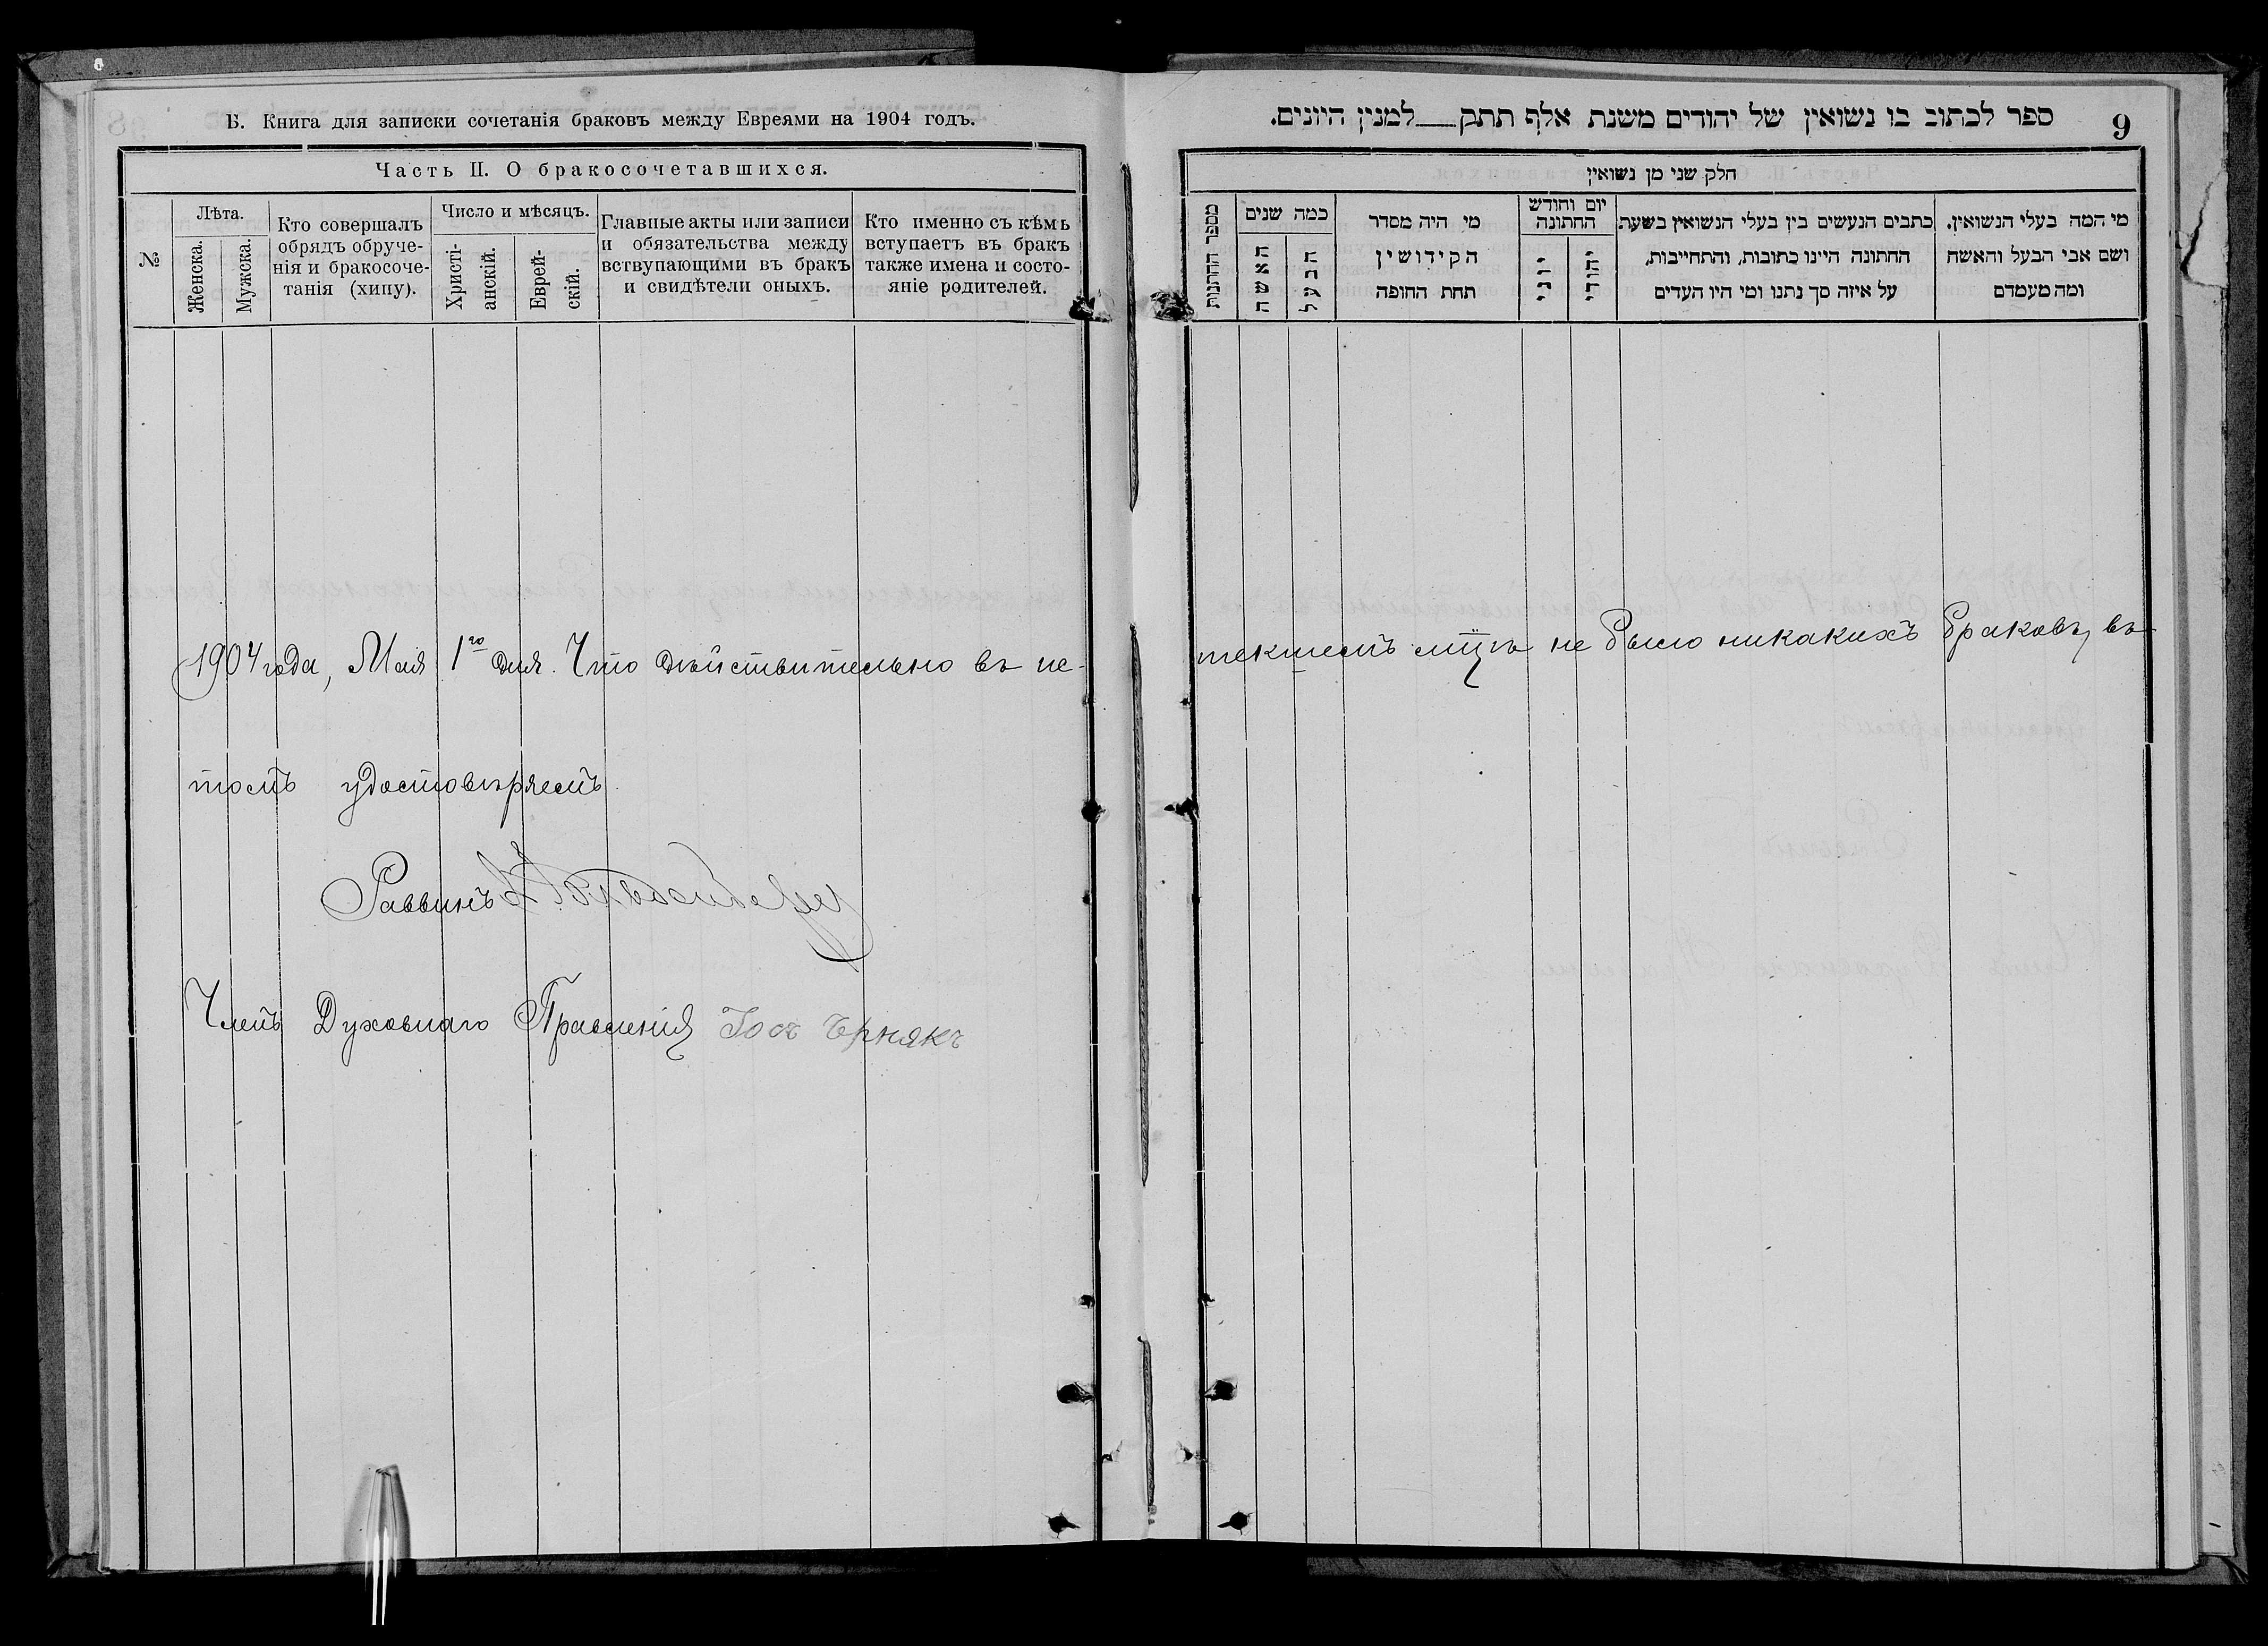 Б. Книга для записки сочетанія браковъ между Евреями на 1904 годъ.
Часть II. О бракосочетавшихся.
№
Лѣта.
Женска.
Мужска.
Кто совершалъ
обрядъ обруче-
нія и бракосоче-
танія (хипу).
Число и мѣсяцъ.
Христі-
анскій.
Еврей-
скій.
Главные акты или записи
и обязательства между
вствупающими въ бракъ
и свидѣтели оныхъ.
Кто именно съ кѣмъ
вступаетъ въ бракъ
также имена и состо-
яніе родителей.
1904 года, Мая 1го дня. Что дѣйствительно въ ис-
томъ удостовѣряемъ
Раввинъ
Членъ Духовнаго Правленія
ספר לכתוב בו נשואין של יהודים משנת אלף תתק___למנין היונים.
9
חלק שני מן נשואין
מספר החתונות
כמה שנים
האשה
הבעל
מי היה מסדר
הקידושין
תחת החופה
יום וחודש
החתונה
יוני
יהודי
כתבים הנעשים בין בעלי הנשואין בשעת
החתונה היינו כתובות, והתחייבות,
על איזה סך נתנו ומי היו העדים
מי המה בעלי הנשואין.
ושם אבי הבעל והאשה
ומה מעמדם
текшемъ мцѣ не было никакихъ браковъ, въ